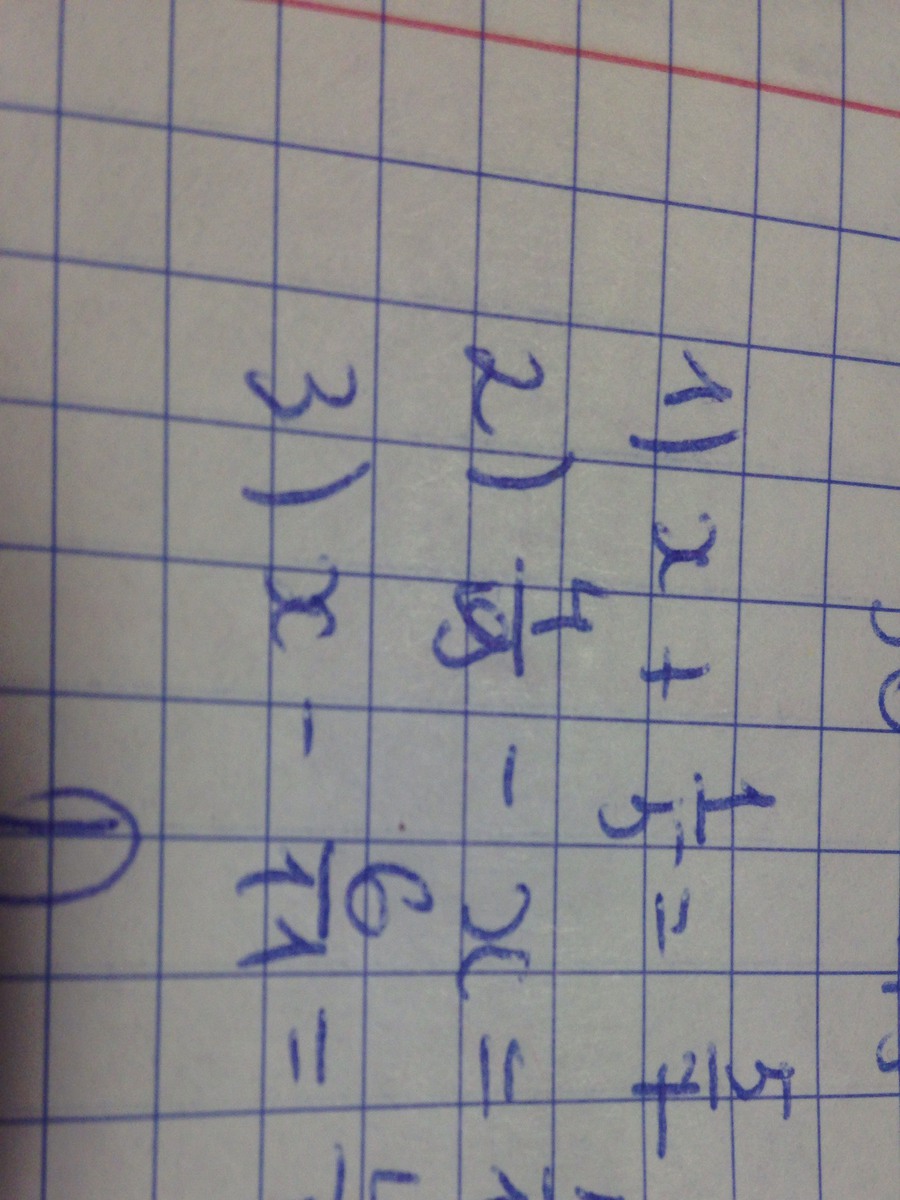 1) x + 1/5 = 5/7
2) 4/9 - x =
3) x - 6/11 =